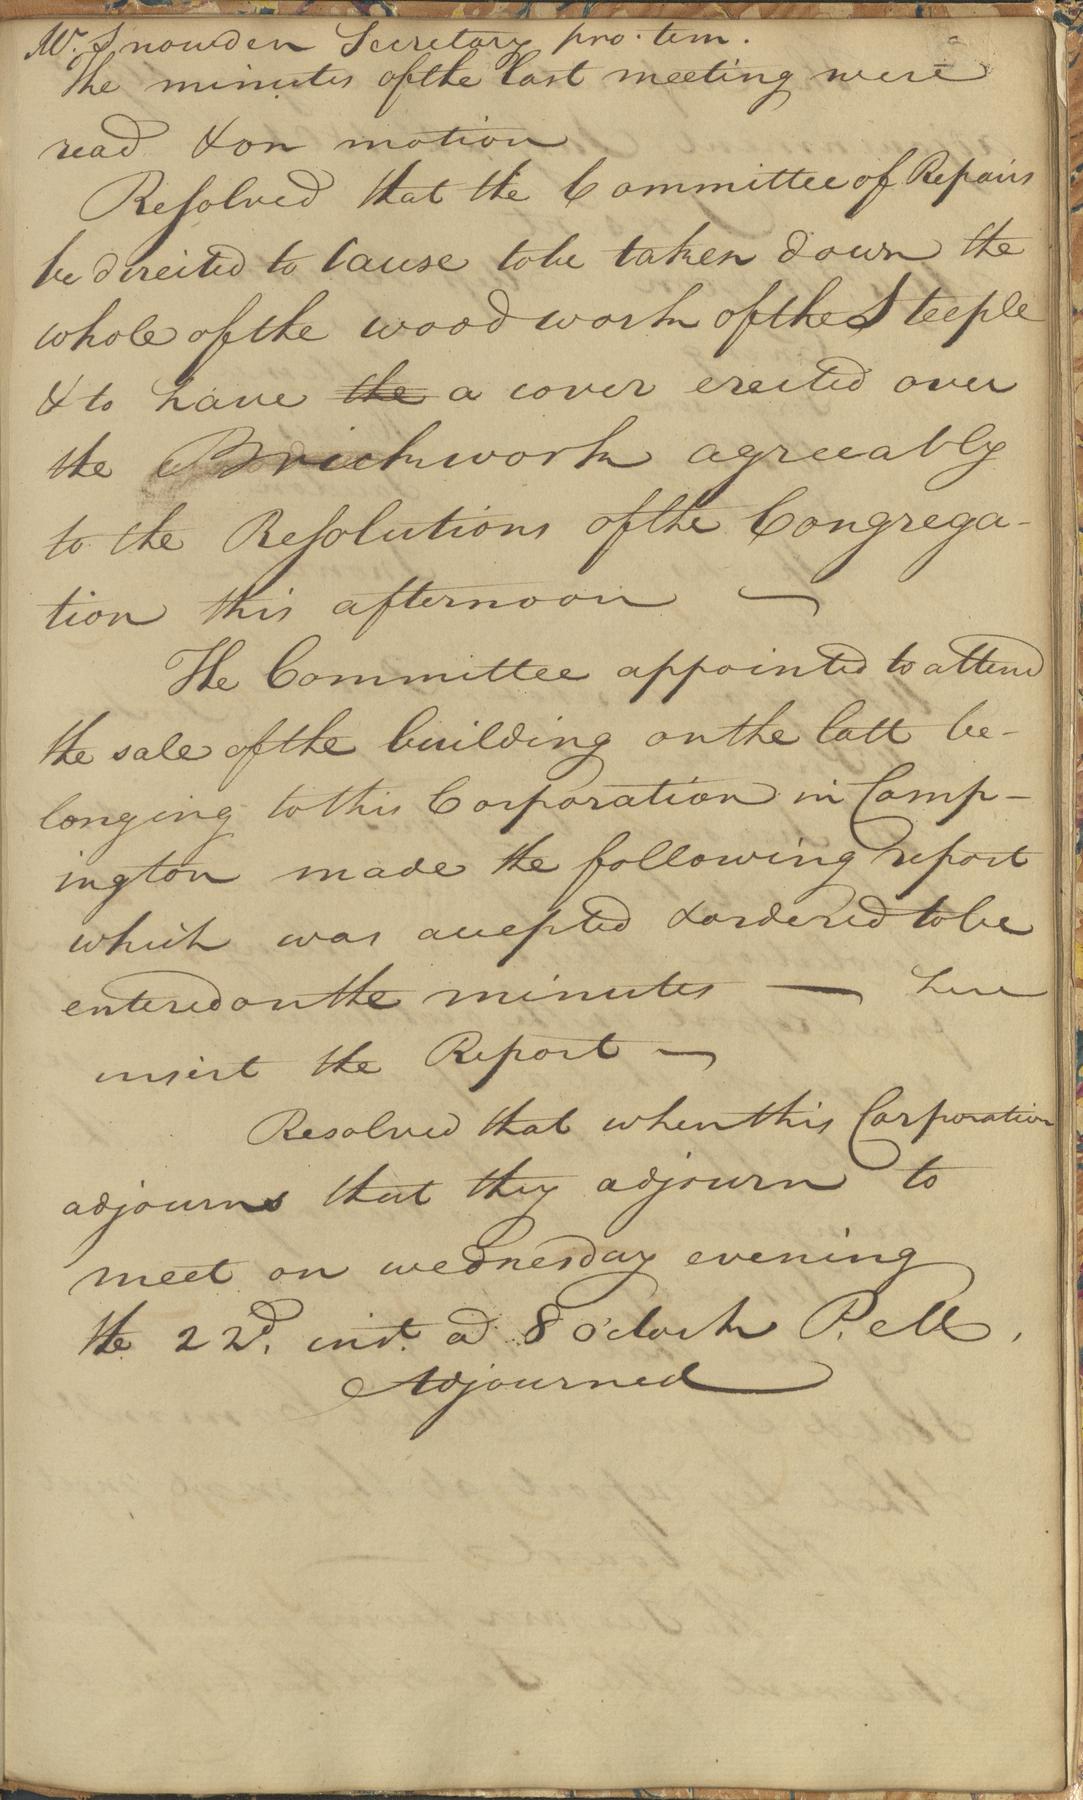 W. Snowden Secretary pro. tem.
The minutes of the last meeting were
read & on motion
Resolved that the Committee of Repairs
be directed to cause to be taken down the
whole of the wood work of the Steeple
& to have the a cover erected over
the Brickwork agreeably
to the Resolutions of the Congrega-
tion this afternoon —
The Committee appointed to attend
the sale of the building on the lott be-
longing to this Corporation in Camp-
ington made the following report
which was accepted & ordered to be
entered on the minutes — here
insert the Report —
Resolved that when this Corporation
adjourns that they adjourn to
meet on wednesday evening
the 22d. inst. at 8 o'clock P. M.
Adjourned